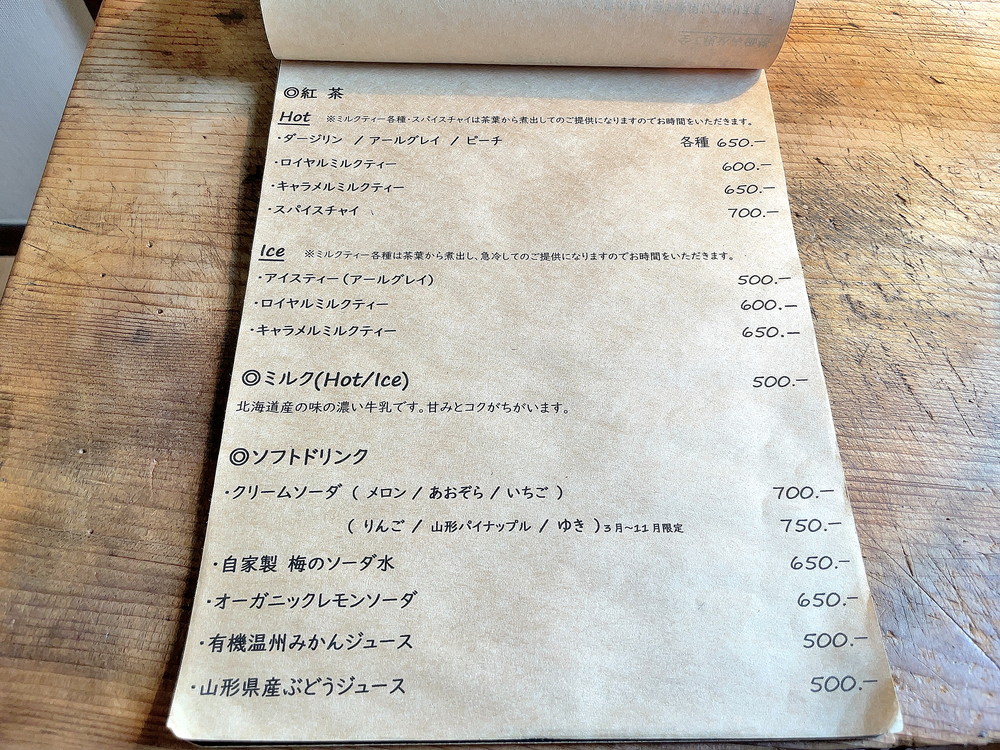 ◎紅 茶
Hot ※ミルクティー各種・スパイスチャイは茶葉から煮出してのご提供になりますのでお時間をいただきます。
・ダージリン / アールグレイ / ピーチ 各種 650.-
・ロイヤルミルクティー 600.-
・キャラメルミルクティー 650.-
・スパイスチャイ 700.-
Ice ※ミルクティー各種は茶葉から煮出し、急冷してのご提供になりますのでお時間をいただきます。
・アイスティー(アールグレイ) 500.-
・ロイヤルミルクティー 600.-
・キャラメルミルクティー 650.-
◎ミルク(Hot/Ice) 500.-
北海道産の味の濃い牛乳です。甘みとコクがちがいます。
◎ソフトドリンク
・クリームソーダ ( メロン / あおぞら / いちご ) 700.-
( りんご / 山形パイナップル / ゆき )3月~11月限定 750.-
・自家製 梅のソーダ水 650.-
・オーガニックレモンソーダ 650.-
・有機温州みかんジュース 500.-
・山形県産ぶどうジュース 500.-